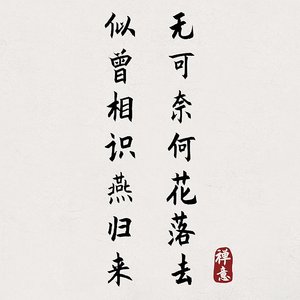 无可奈何花落去
似曾相识燕归来
禅意